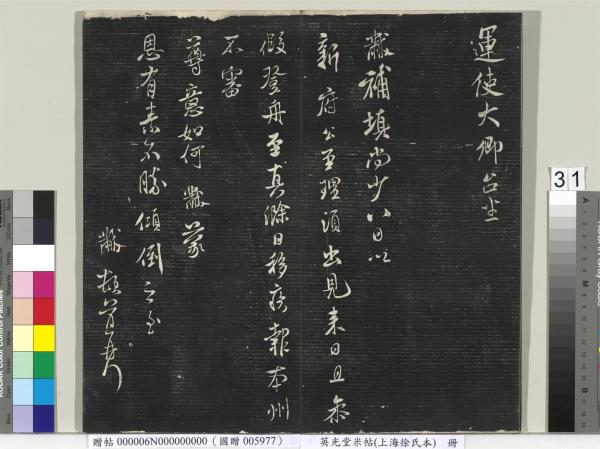 運使大卿台坐
黻補填尚少八日以
新府公至理須出見来日且參
假登舟至真滁日移疾報本州
不審
尊意如何黻蒙
恩有素不勝傾倒之至
黻頓首再拜
31
贈帖 000006N000000000 (國贈 005977)
英光堂米帖(上海徐氏本) 冊